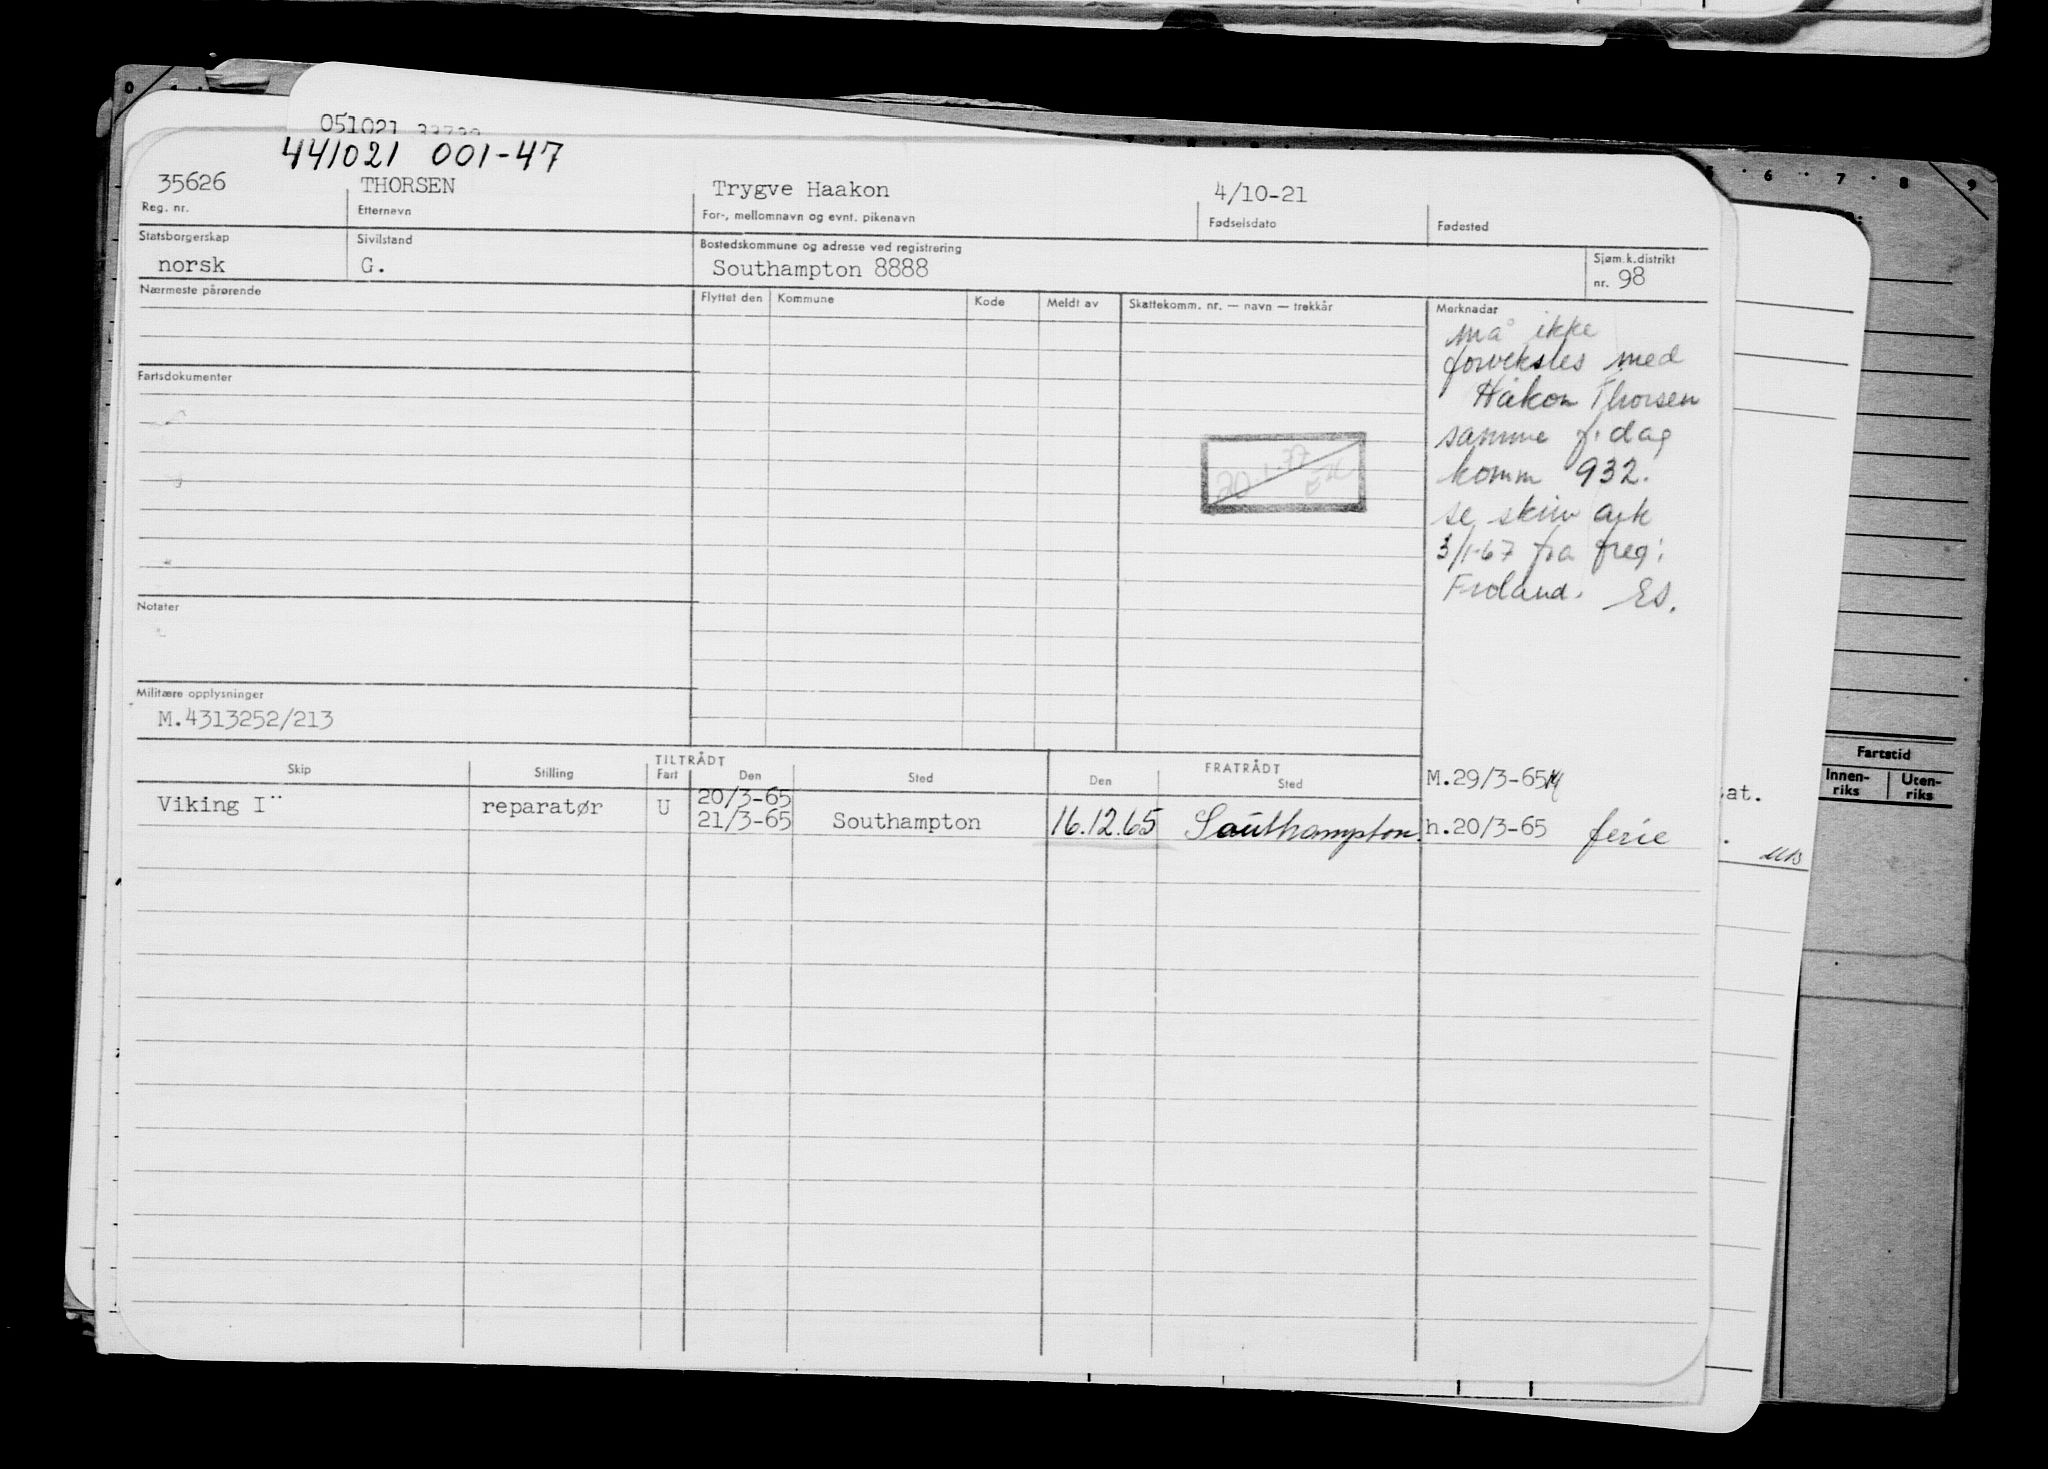 051021
441021 001-47
35626 THORSEN Trygve Haakon 4/10-21
Reg. nr. Etternavn For-, mellomnavn og evnt. pikenavn Fødselsdato Fødested
Statsborgerskap Sivilstand Bostedskommune og adresse ved registrering Sjøm.k.distrikt
norsk G. Southampton 8888 nr. 98
Nærmeste pårørende Flyttet den Kommune Kode Meldt av Skattekomm. nr. — navn — trekkår Merknader
må ikke
forveksles med
Håkon Thorsen
samme f. dag
komm 932.
se skriv ark
3/1-67 fra freg:
Froland. ES.
Fartsdokumenter
Notater
Militære opplysninger
M.4313252/213
TILTRÅDT FRATRÅDT
Skip Stilling Fart Den Sted Den Sted
M.29/3-65
Viking I¨ reparatør U 20/3-65
21/3-65 Southampton 16.12.65 Southampton. h.20/3-65 ferie
5 6 7 8 9
0
Fartstid
Innen-
riks
Uten-
riks
at.